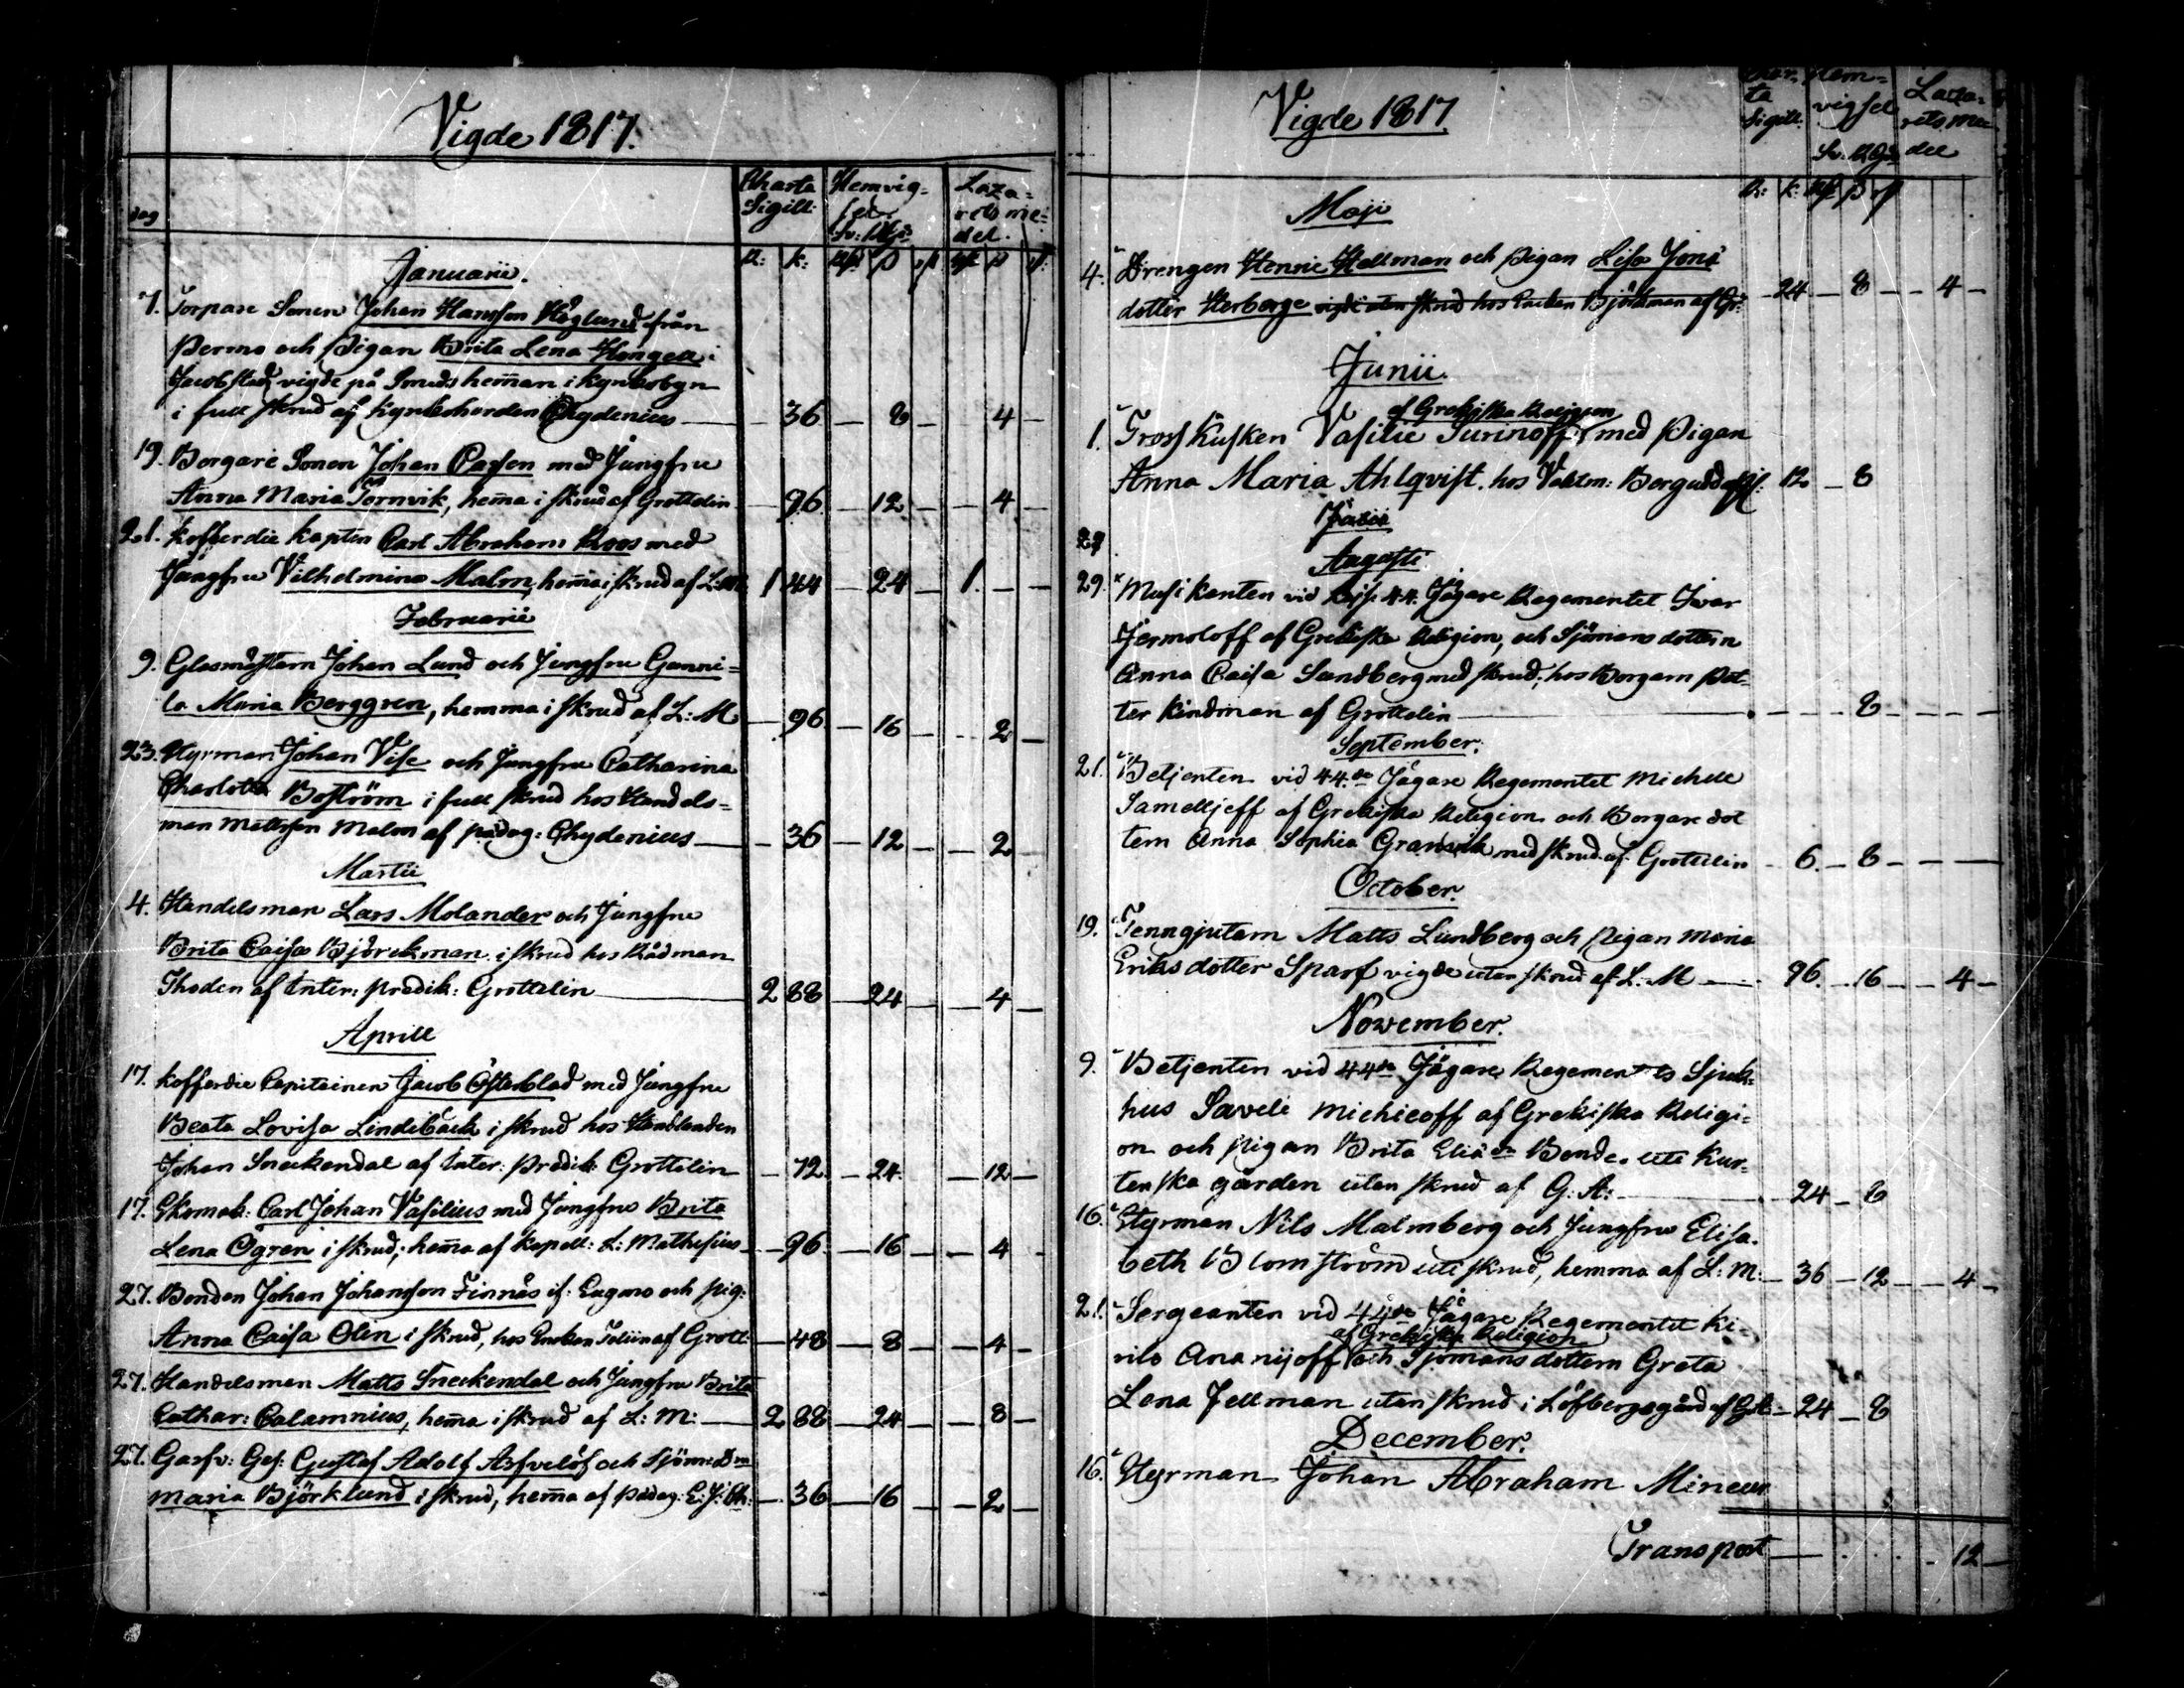 Vigde 1817.
dag
Charta Sigill: Hemvigsel. Sv: Rdgs Lazaretsmedel.
R: k:
Januarii.
7. Torpare Sonen Johan Hansson Höglund från
Permo och Pigan Brita Lena Hongell i
Jacobstad, vigde på Smeds heman i Kynkobyn
i full skrud af Chydenius — 36 — 8 — 4 —
19. Borgare Sonen Johan Carsen med Jungfru
Anna Maria Törnvik, hema i skrud af Grottelin 96 12 — 4 —
21. Kofferdie Kapten Carl Abraham Roos med
Jungfru Vilhelmina Malm, hema i skrud af L: M: 1 44 — 24 — 1. — —
Februarii
9. Glasmästarn Johan Lund och Jungfru Gunni=
la Maria Berggren, hemma i skrud af L: M — 96 — 16 — 2 —
23. Styrman Johan Vise och Jungfru Catharina
Charlotta Boström i full skrud hos Handels=
man Mattsson Malm af pædag: Chydenius — 36 — 12 — 2
Martii
4. Handelsman Lars Molander och Jungfru
Brita Caisa Björckman i skrud hos Rådman
Thoden af Inter: predik: Grottelin — 2 88 — 24 — 4 —
Aprill
17. Kofferdie Capitainen Jacob Österblad med Jungfru
Beata Lovisa Lindebäck i skrud hos Handlanden
Johan Sneckendal af Inter: predik: Grottelin — 72 — 24 — 12 —
17. Skomak: Carl Johan Vasilius med Jungfru Brita
Lena Ögren i skrud, hema af Kapell: L: Mathesius — 96 — 16 — 4 -
27. Bonden Johan Johansson Finnäs if: Eugmo och pig:
Anna Caisa Olin i skrud, hos Enckan af Grott: — 48 — 8 — 4 —
27. Handelsman Matts Sneckendal och Jungfru Brita
Cathar: Calamnius, hema i skrud af L: M: — 2 88 — 24 — 8 —
27. Garfv: Ges: Gustaf Adolf Asfvelöf och
Maria Björklund i skrud, hema af pædag: E: J: Ch: — 36 — 16 — 2 —
Vigde 1817.
Charta Sigill: Hemvigsel Sv: Rdgs Lazaretsmedel
R: k:
Maji
4. Drengen Henric Hellman och Pigan Lisa Jons
dotter Herberge vigde utan skrud hos Enckan Björkman af Gr: — 24 — 8 — — 4 —
Junii.
af Grekiska Religion
1. Tross Kusken Vasilie Turinoff med Pigan
Anna Maria Ahlqvist. hos Vaktm: Berglund af 12 — 8
Julii
27
Augusti
29. Musikanten vid 44. Jägare Regementet Ivar
Jermoloff af Grekiska Religion, och Sjömans dottern
Anna Caisa Sandberg med skrud; hos Borgarn Pet=
ter Kindman af Grottelin — 8 — — —
September.
21. Betjenten vid 44.de Jägare Regementet Michell
Samelljeff af Grekiska Religion och Borgare dot
tern Anna Sophia Granvik med skrud af Grottelin — 6 — 8 — — —
October.
19. Tenngjutarn Matts Lundberg och Pigan Maria
Eriksdotter Sparf vigde utan skrud af L: M — 96. 16 — — 4 —
November.
9. Betjenten vid 44de Jägare Regementets Sjuk=
hus Saveli Michieoff af Grekiska Religi=
on och pigan Brita Elia dr Bonde. uti Kur=
tenska gården utan skrud af G: A: — 24 — 8
16. Styrman Nils Malmberg och Jungfru Elisa=
beth Blomström uti skrud, hemma af L: M: — 36 — 12 — — 4 —
21. Sergeanten vid 44de Jägare Regementet Ki=
af Grekiska Religion
rilo Ananijoff och Sjömans dottern Greta
Lena Fellman utan skrud i Löfbergs gård af — 24 — 8
December.
16. Styrman Johan Abraham Mineur
Transport — 12 —